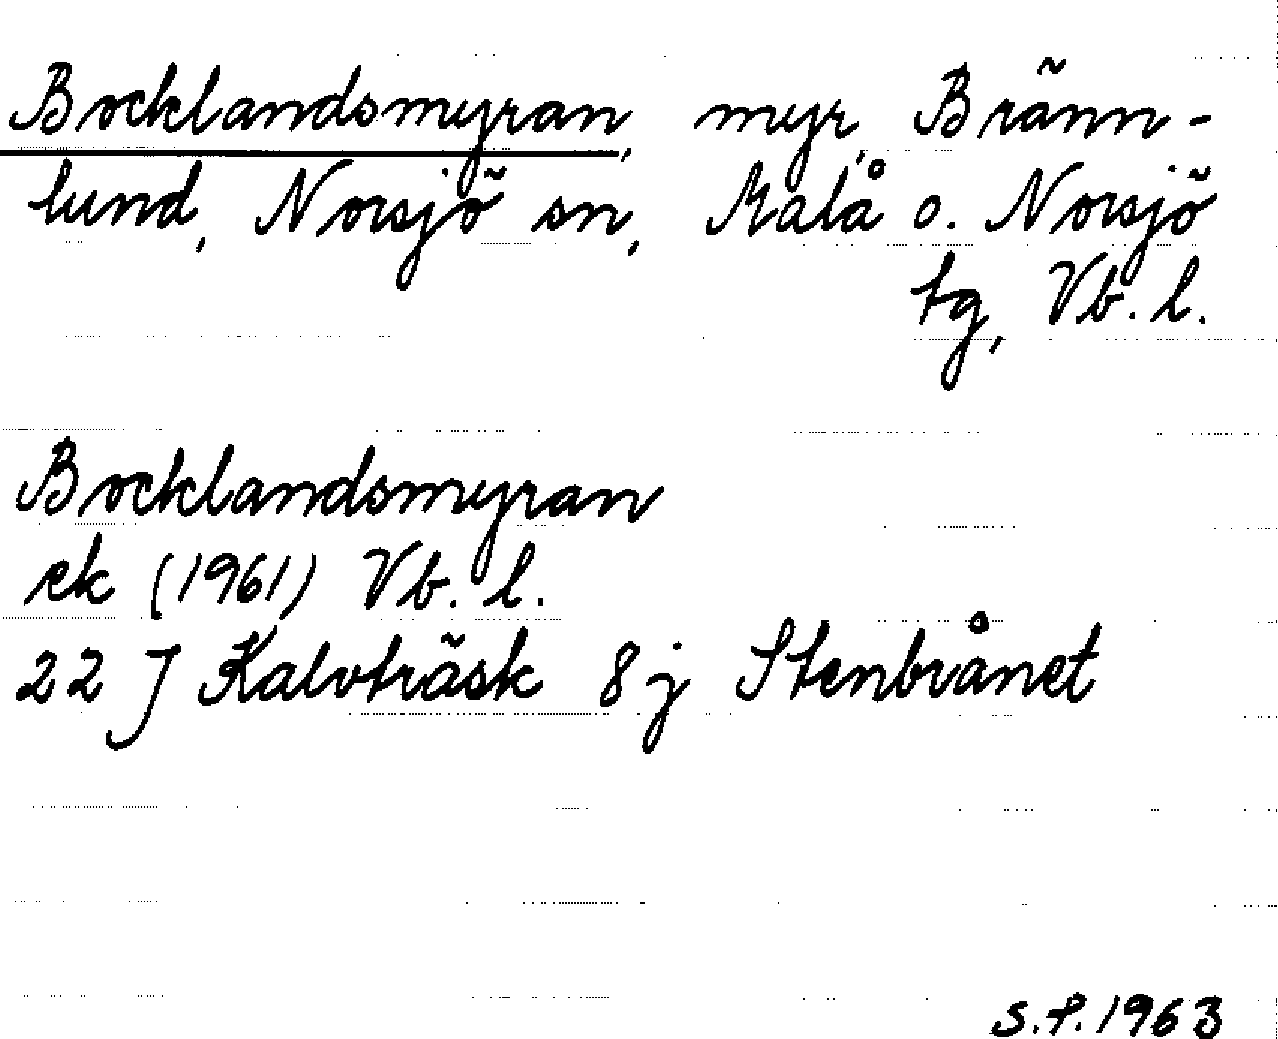 Bocklandsmyran, myr, Bränn-
lund, Norsjö sn, Malå o. Norsjö
tg, Vb. l.
Bocklandsmyran
ek (1961) Vb. l.
22 J Kalvträsk 8 j Stenbrånet
S.P. 1963